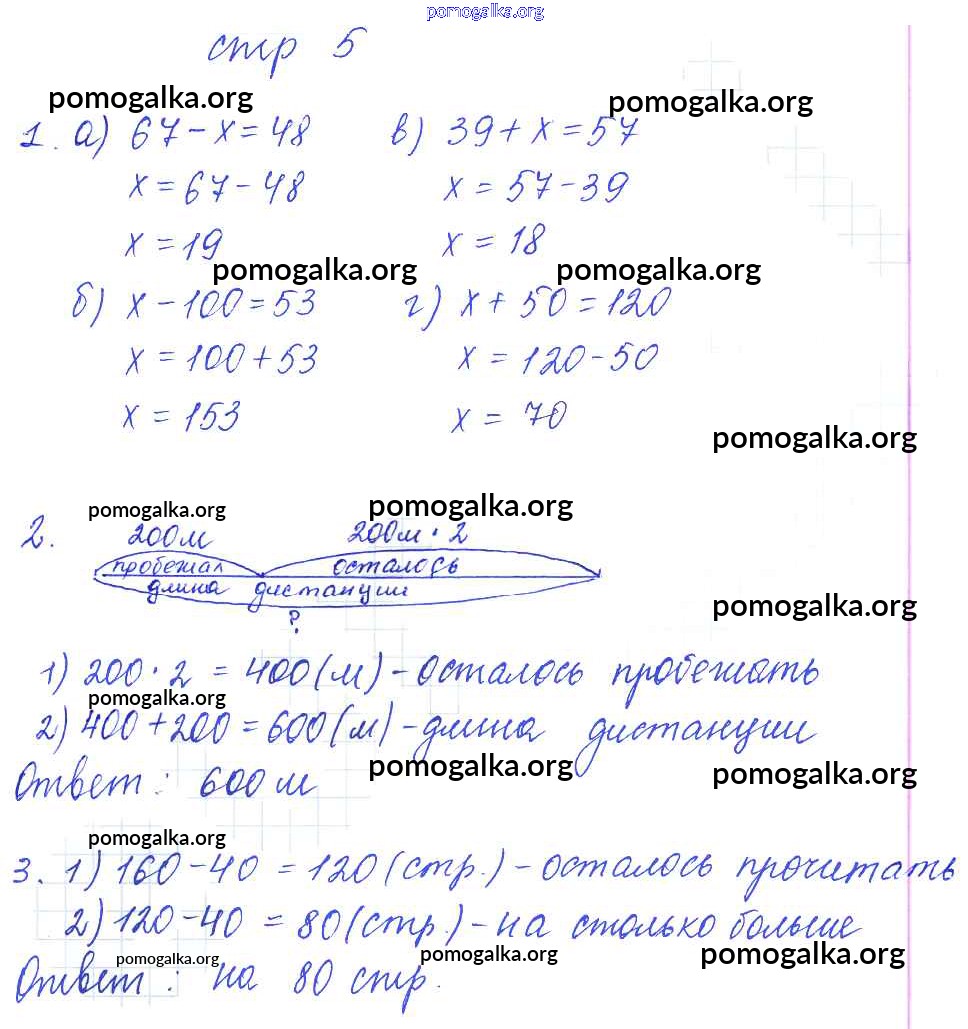 pomogalka.org
стр 5
pomogalka.org pomogalka.org
1. а) 67 - x = 48 в) 39 + x = 57
x = 67 - 48 x = 57 - 39
x = 19 x = 18
pomogalka.org pomogalka.org
б) x - 100 = 53 г) x + 50 = 120
x = 100 + 53 x = 120 - 50
x = 153 x = 70
pomogalka.org
pomogalka.org pomogalka.org
2. 200м 200м · 2
пробежал осталось
длина дистанции
pomogalka.org
?
1) 200 · 2 = 400 (м) - осталось пробежать
pomogalka.org
2) 400 + 200 = 600 (м) - длина дистанции
pomogalka.org pomogalka.org
Ответ: 600 м
pomogalka.org
3. 1) 160 - 40 = 120 (стр.) - осталось прочитать
2) 120 - 40 = 80 (стр.) - на столько больше
pomogalka.org pomogalka.org pomogalka.org
Ответ: на 80 стр.